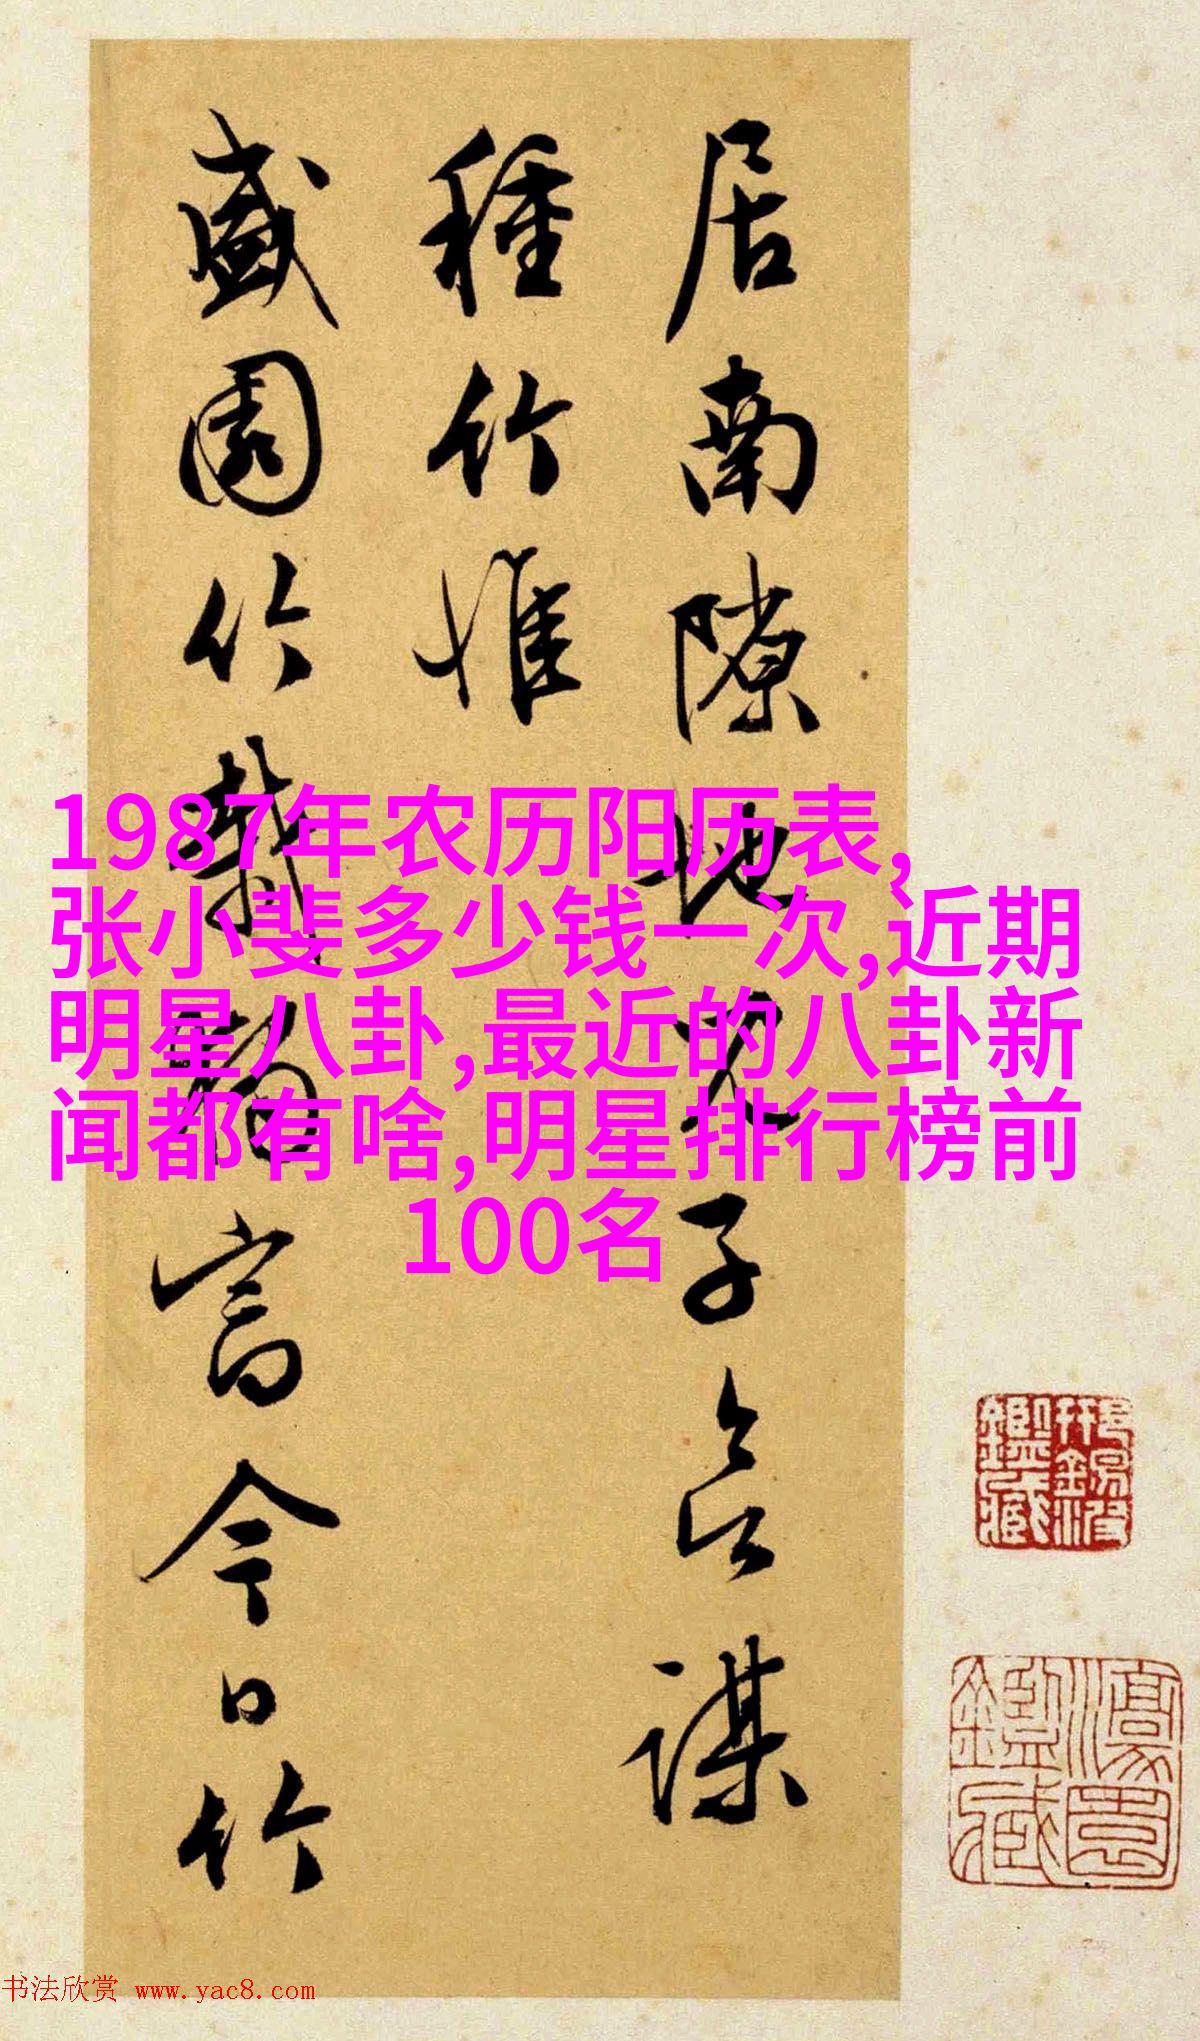 居南隙地
子念謀
種竹惟
盛園竹
富今日竹
1987年农历阳历表,
张小斐多少钱一次,近期
明星八卦,最近的八卦新
闻都有啥,明星排行榜前
100名
鑑藏
鑑藏
书法欣赏 www.yac8.com